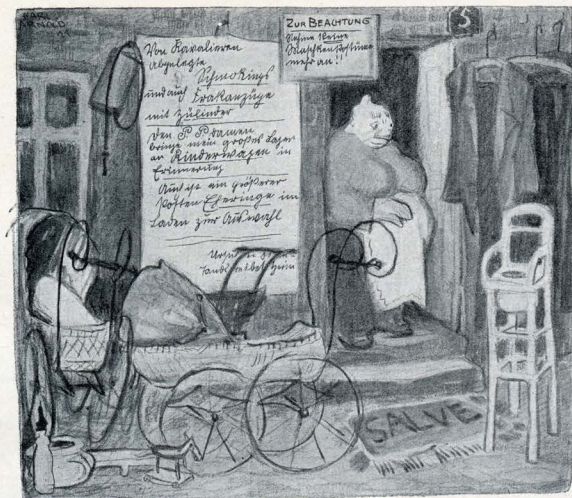 KARL
ARNOLD
Von Kavalieren
abgelegte
Schmokings
und auch Frakanzüge
mit Zülinder
Den P. P. Damen
bringe mein großes Lager
an Kinderwagen in
Erinnerung
Auch ist ein größerer
Posten Eheringe im
Laden zur Auswahl
ZUR BEACHTUNG
Nehme keine
Maskenkostüme
mehr an!!
5
SALVE